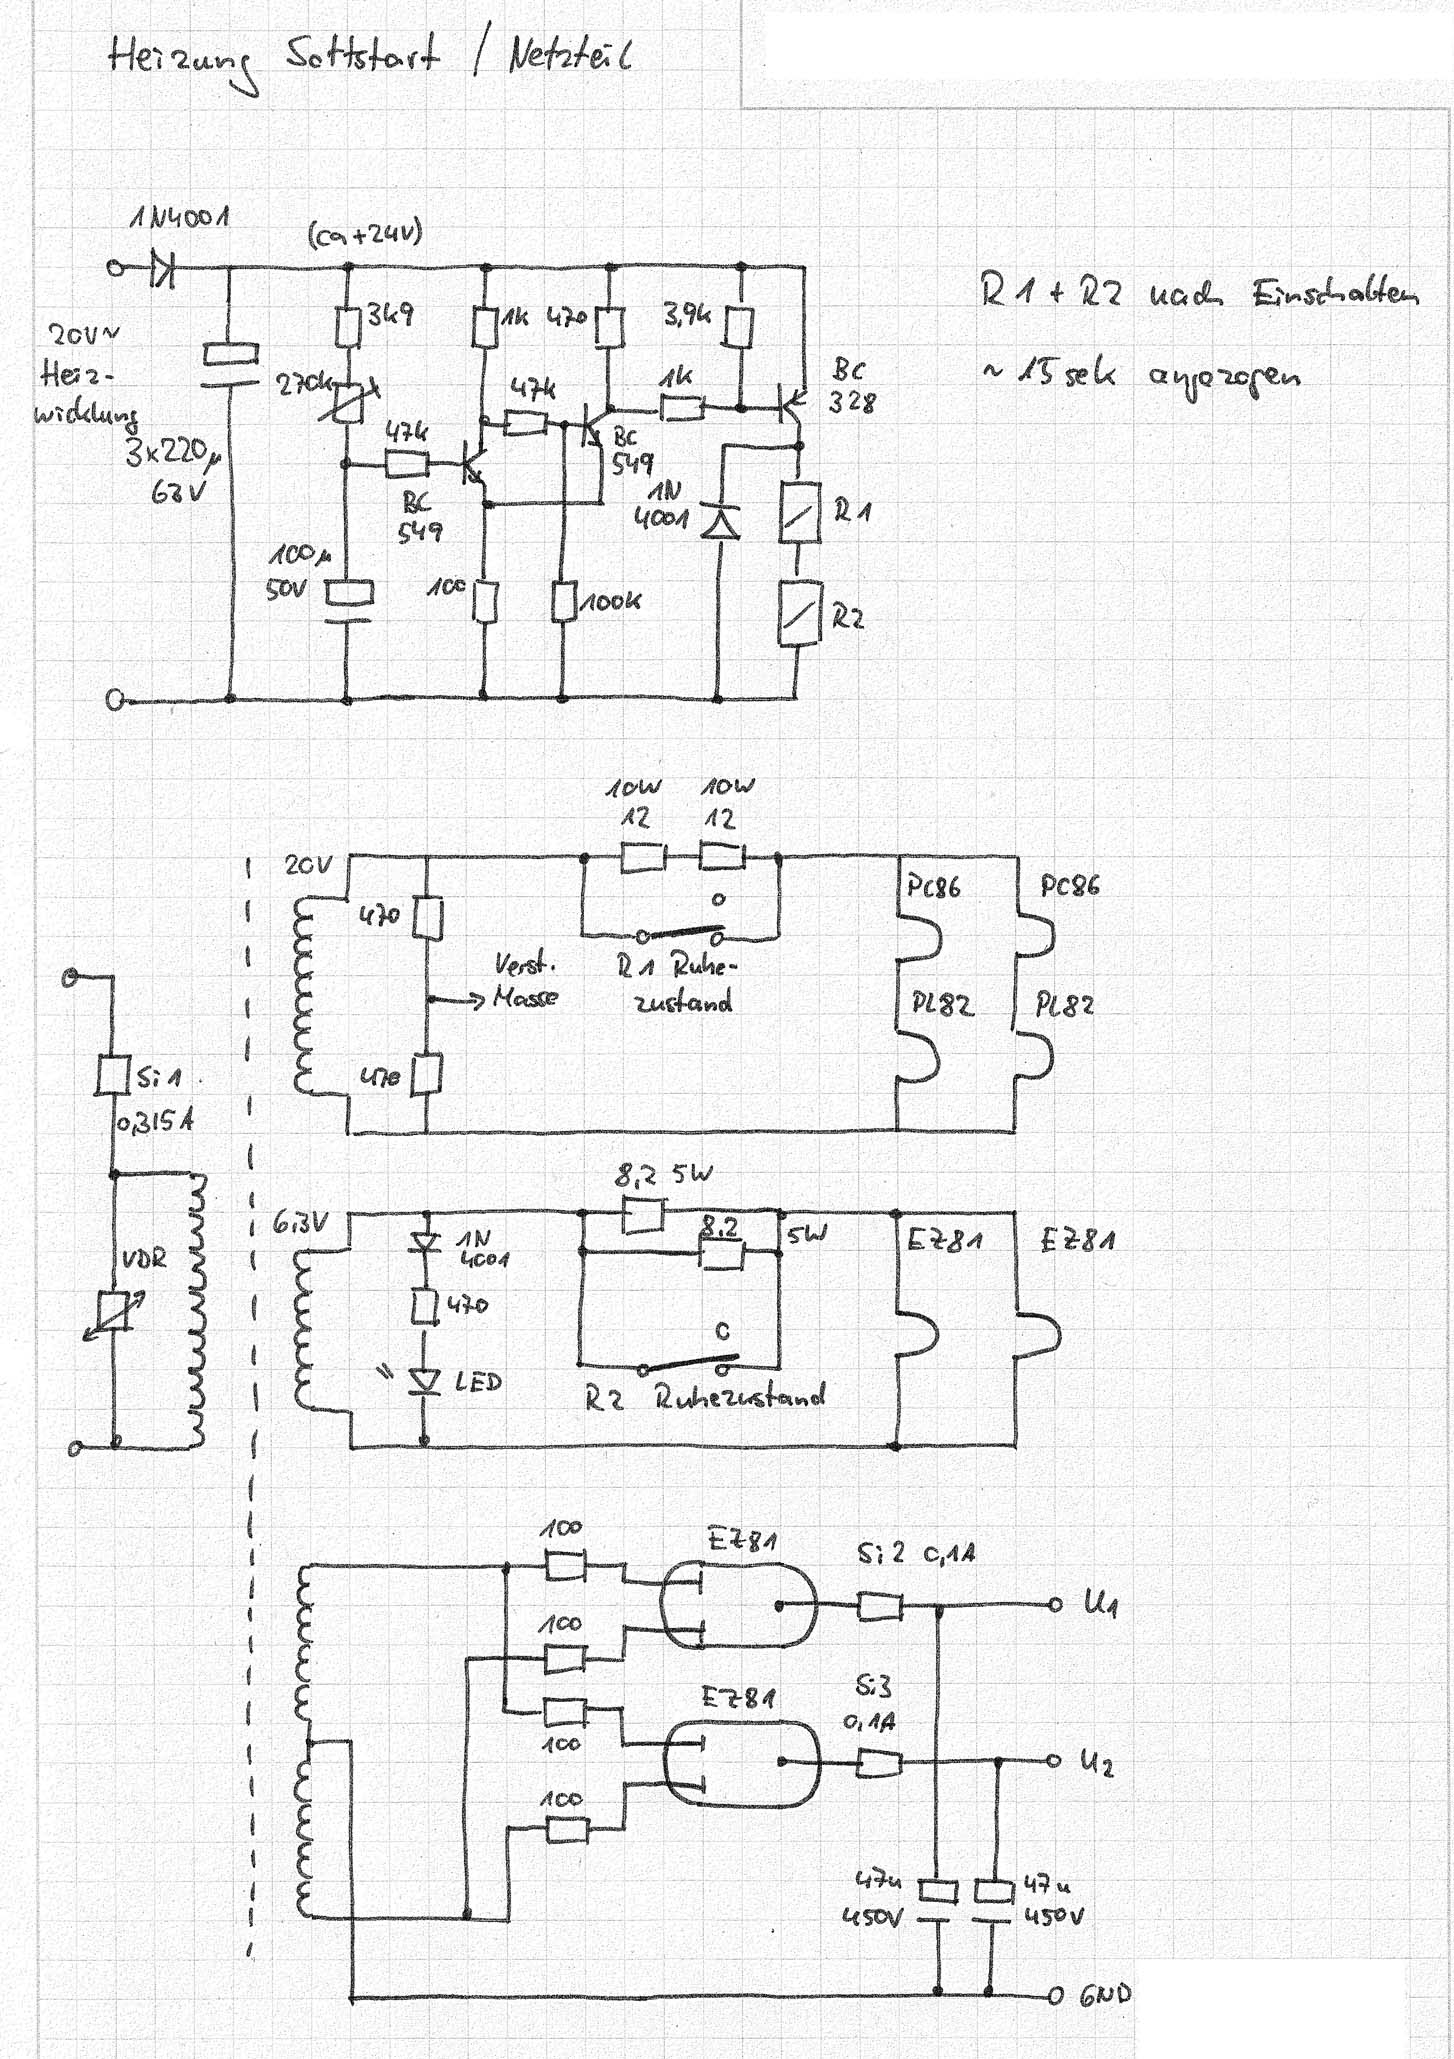 Heizung Softstart / Netzteil
1N4001
(ca +24V)
20V~
Heiz-
wicklung
3x220µ
63V
3k9
270k
47k
BC
549
100µ
50V
1k
47k
100
100k
470
BC
549
1k
3,9k
BC
328
1N
4001
R1
R2
R1 + R2 nach Einschalten
~ 15 sek angezogen
Si1
0,315A
VDR
20V
470
470
Verst.
Masse
10W
12
10W
12
R1 Ruhe-
zustand
PC86
PC86
PL82
PL82
6,3V
1N
4001
470
LED
8,2 5W
8,2
5W
R2 Ruhezustand
EZ81
EZ81
100
100
100
100
EZ81
EZ81
Si2 0,1A
Si3
0,1A
U1
U2
47u
450V
47u
450V
GND